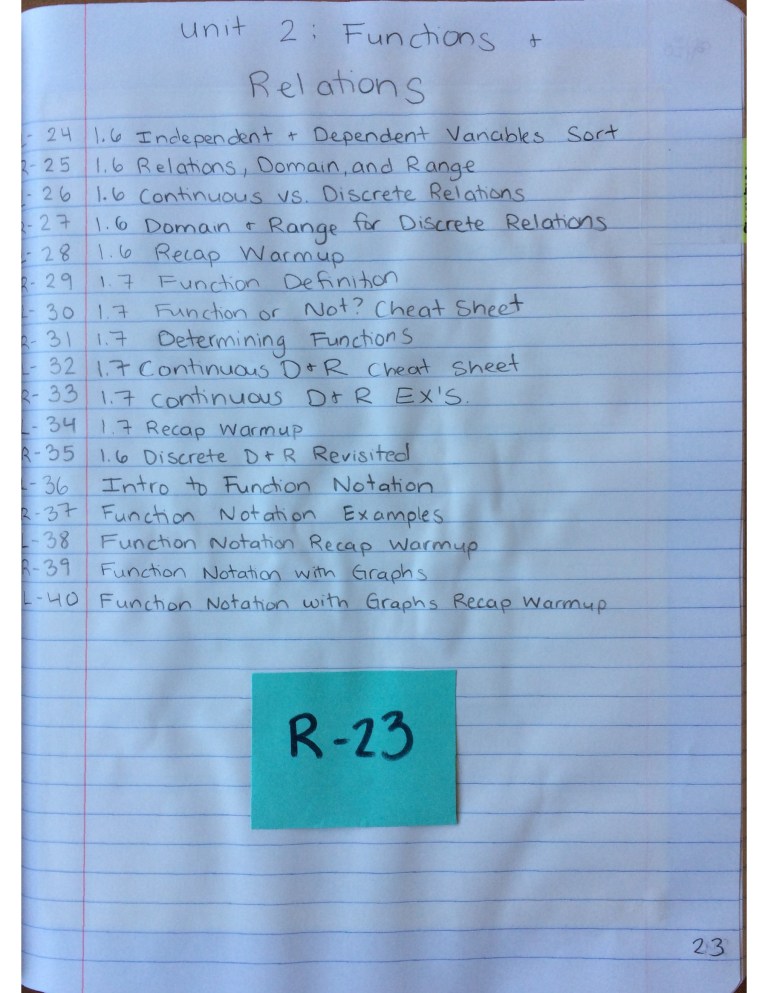 Unit 2: Functions +
Relations
L-24 1.6 Independent + Dependent Variables Sort
R-25 1.6 Relations, Domain, and Range
L-26 1.6 Continuous vs. Discrete Relations
R-27 1.6 Domain + Range for Discrete Relations
L-28 1.6 Recap Warmup
R-29 1.7 Function Definition
L-30 1.7 Function or Not? Cheat Sheet
R-31 1.7 Determining Functions
L-32 1.7 Continuous D+R Cheat Sheet
R-33 1.7 Continuous D+R EX'S.
L-34 1.7 Recap Warmup
R-35 1.6 Discrete D+R Revisited
L-36 Intro to Function Notation
R-37 Function Notation Examples
L-38 Function Notation Recap Warmup
R-39 Function Notation with Graphs
L-40 Function Notation with Graphs Recap Warmup
R-23
23